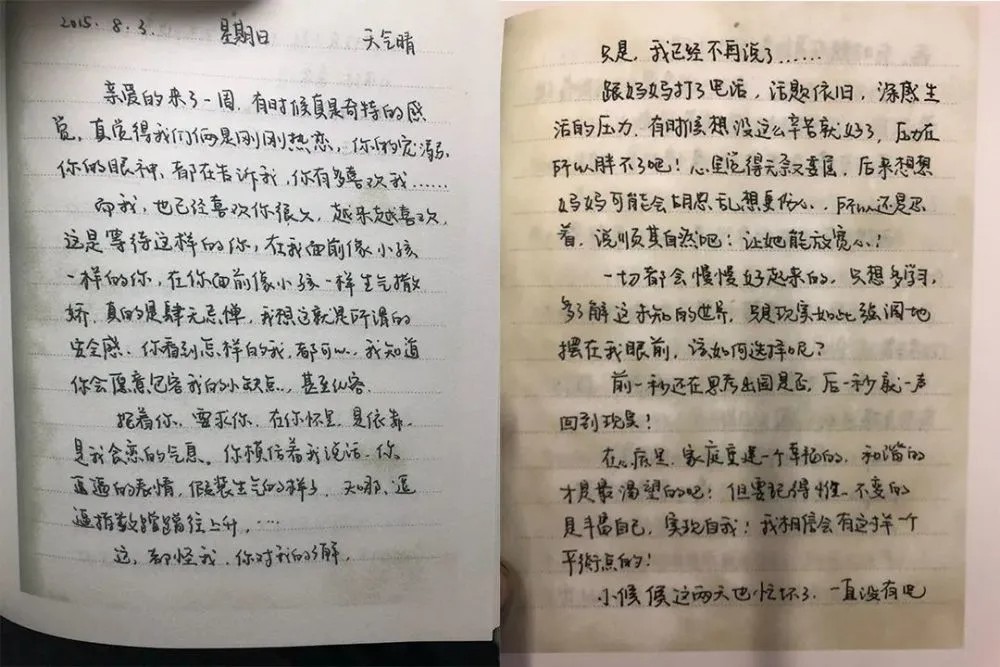 2015.8.3. 星期日 天气晴
亲爱的来了一周，有时候真是奇特的感
觉，真觉得我们俩是刚刚热恋，你的宠溺，
你的眼神，都在告诉我，你有多喜欢我……
而我，也已经喜欢你很久，越来越喜欢，
这是等待这样的你，在我面前像小孩
一样的你，在你面前像小孩一样生气撒
娇，真的是肆无忌惮，我想这就是所谓的
安全感，你看到怎样的我，都可以，我知道
你会愿意包容我的小缺点，甚至纵容。
抱着你，要求你，在你怀里，是依靠，
是我贪恋的气息。你模仿着我说话，你
逗逼的表情，假装生气的样子，天哪，逗
逼指数蹭蹭往上升，…
这，都怪我，你对我的了解，
只是，我已经不再说了……
跟妈妈打了电话，话题依旧，深感生
活的压力，有时候想没这么辛苦就好了，压力在
所以胖不了吧！心里觉得无奈又委屈，后来想想
妈妈可能会胡思乱想更伤心，所以还是忍
着，说顺其自然吧！让她能放宽心！
一切都会慢慢好起来的，只想多学习，
多了解这未知的世界，只是现实如此强调地
摆在我眼前，该如何选择呢？
前一秒还在思考出国是否，后一秒就一声
回到现实！
在心底里，家庭里是一个幸福的，和谐的
才是最渴望的吧！但要记得惟一不变的
是丰富自己，实现自我！我相信会有这样一个
平衡点的！
小候候这两天也忙坏了，一直没有吧